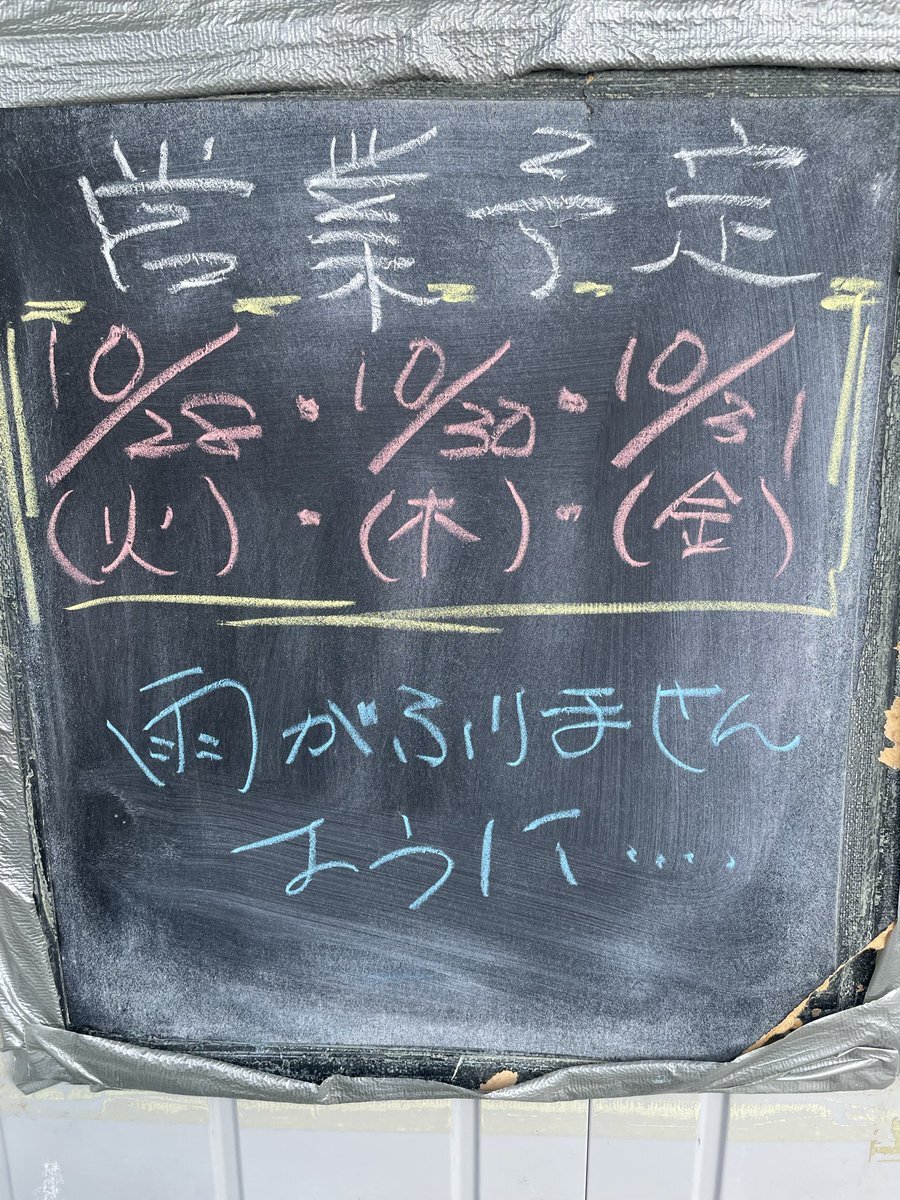 営業予定
10/28・10/30・10/31
(火)・(木)・(金)
雨がふりません
ように・・・・・